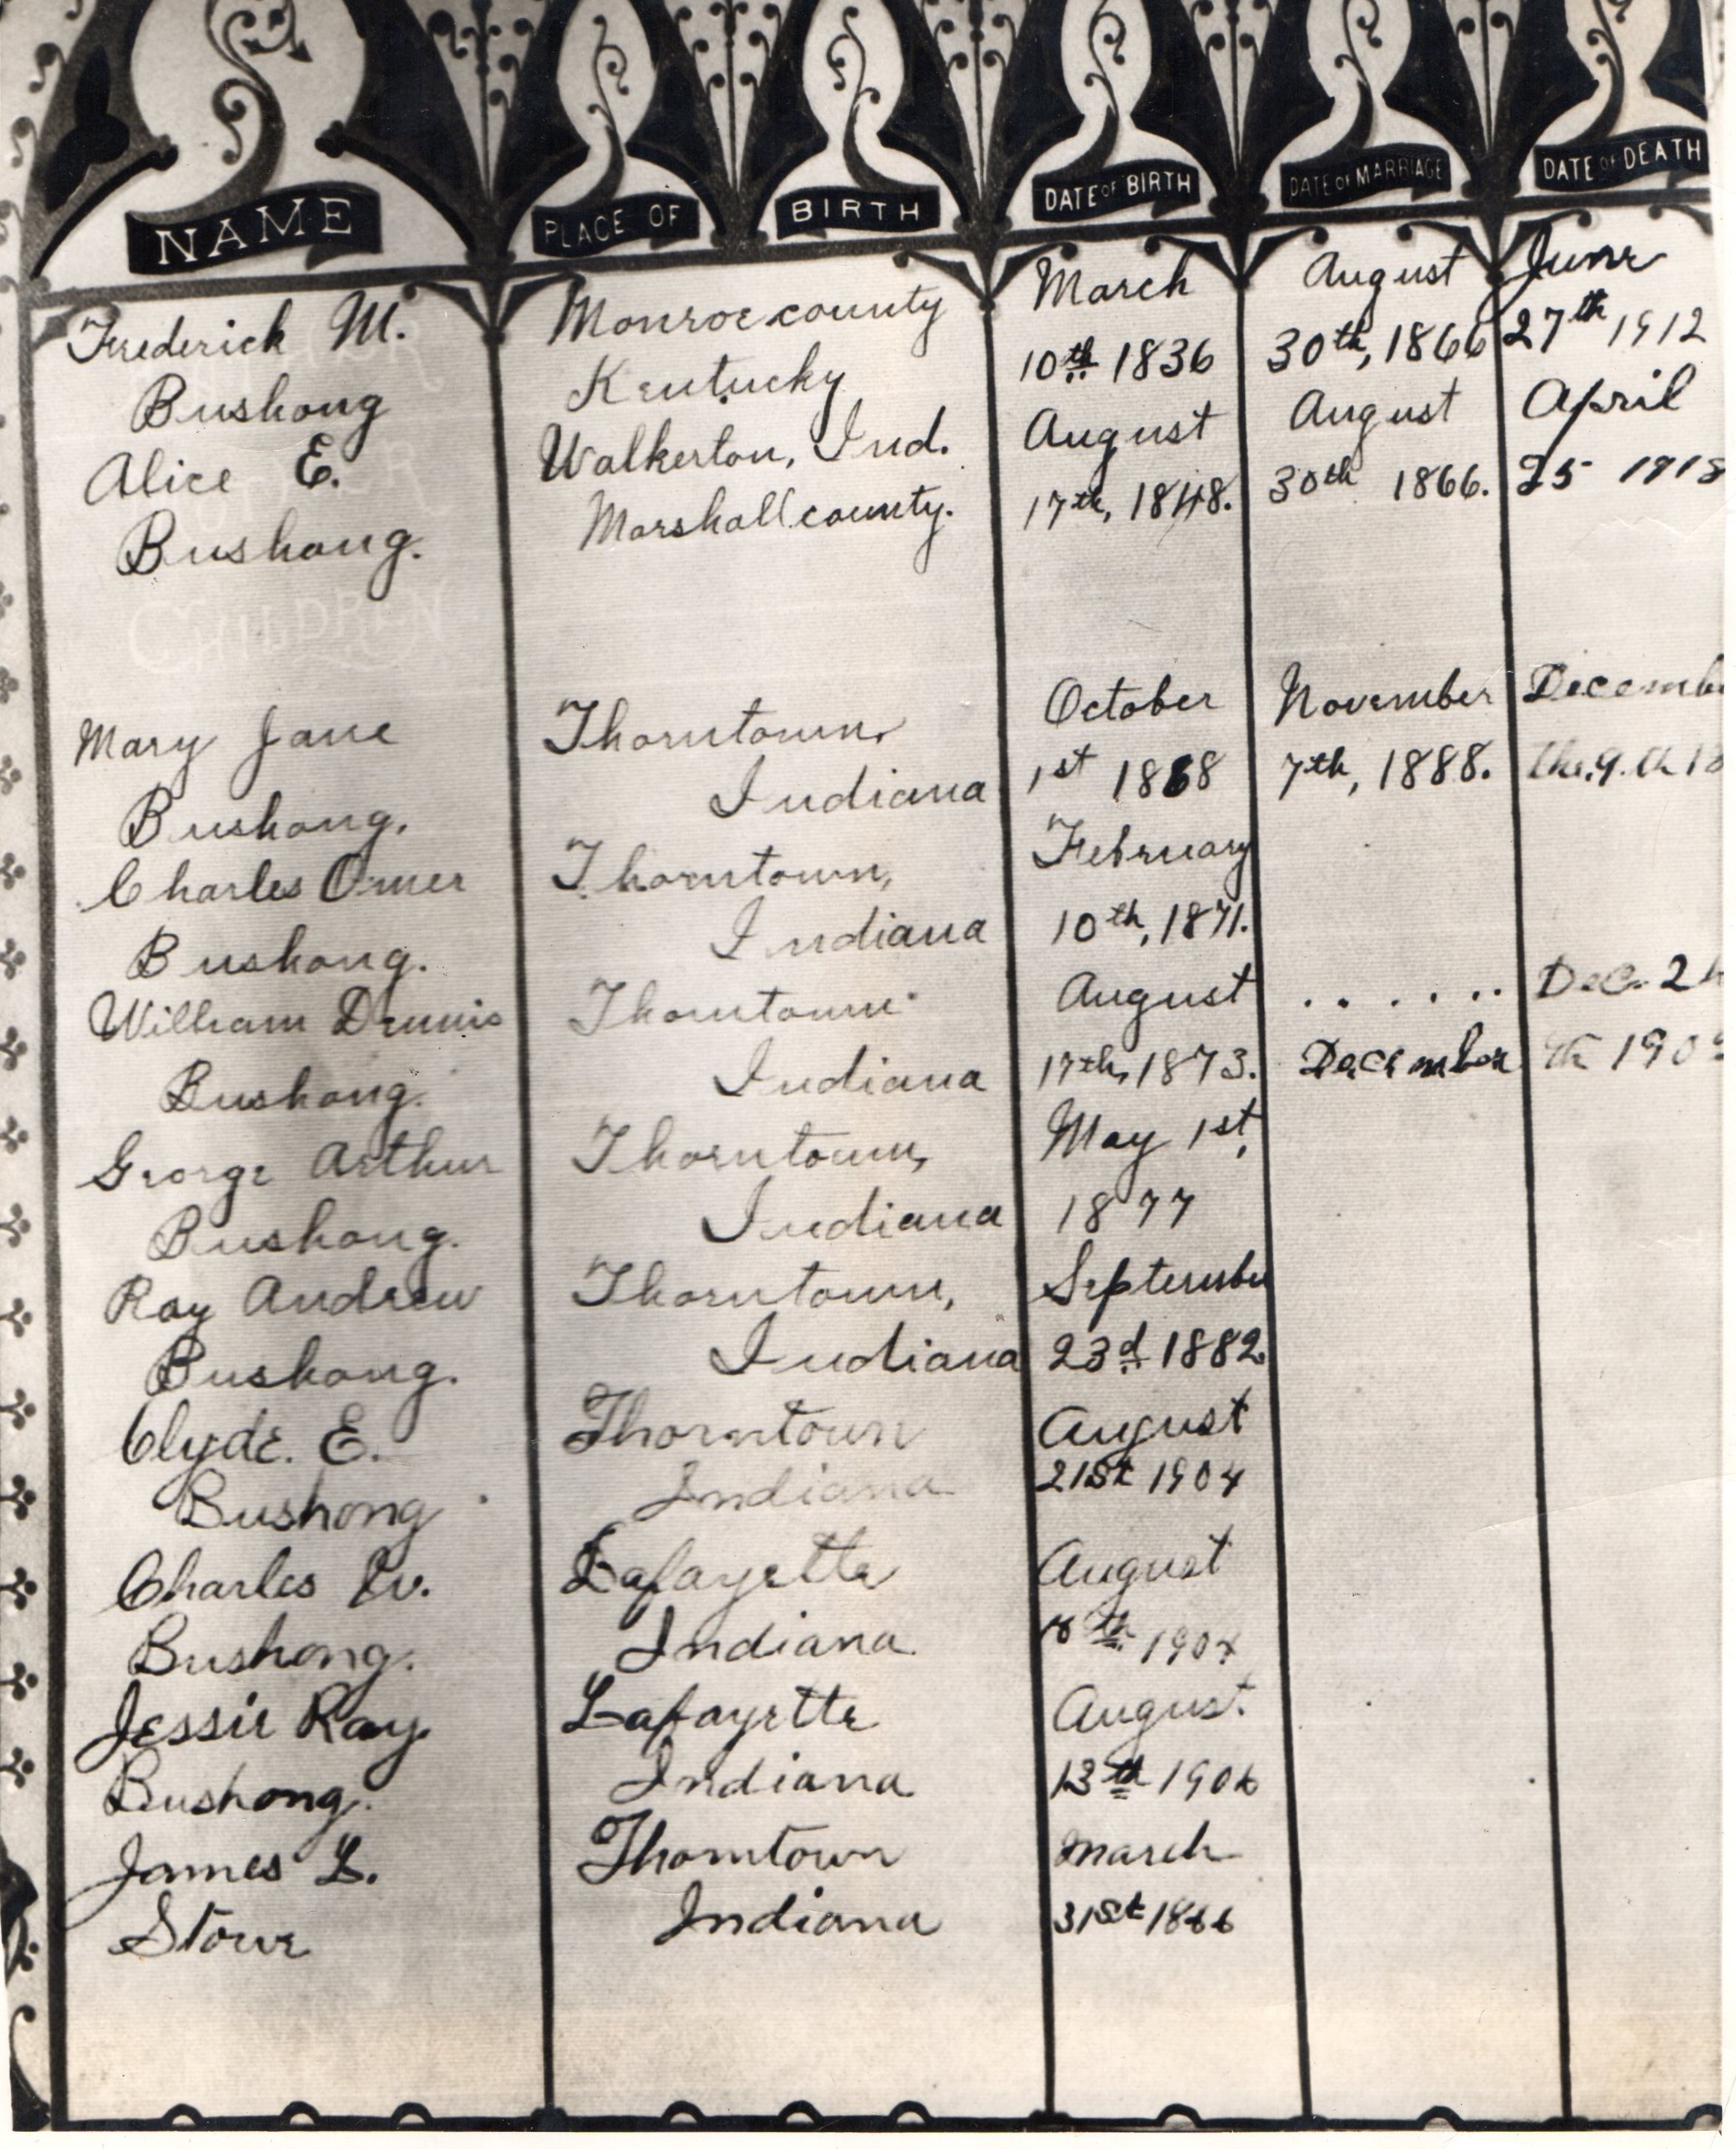 NAME PLACE OF BIRTH DATE OF BIRTH DATE OF MARRIAGE DATE OF DEATH
Frederick M. Monroe county March August June
Bushong Kentucky 10th 1836 30th, 1866 27th 1912
Alice E. Walkerton, Ind. August August April
Bushong. Marshall county. 17th, 1848. 30th 1866. 25 1918
CHILDREN
Mary Jane Thorntown, October November Decemb
Bushong. Indiana 1st 1868 7th, 1888. the 9th 18
Charles Omer Thorntown, February
Bushong. Indiana 10th, 1871.
William Dennis Thorntown August . . . . . . . Dec. 2
Bushong. Indiana 17th, 1873. December th 190
George Arthur Thorntown, May 1st,
Bushong. Indiana 1877
Ray Andrew Thorntown, September
Bushong. Indiana 23d 1882.
Clyde. E. Thorntown August
Bushong Indiana 21st 1904
Charles W. Lafayette August
Bushong. Indiana th 1904
Jessie Ray Lafayette August.
Bushong. Indiana 13th 1906
James L. Thorntown March
Stowe Indiana 31st 1866